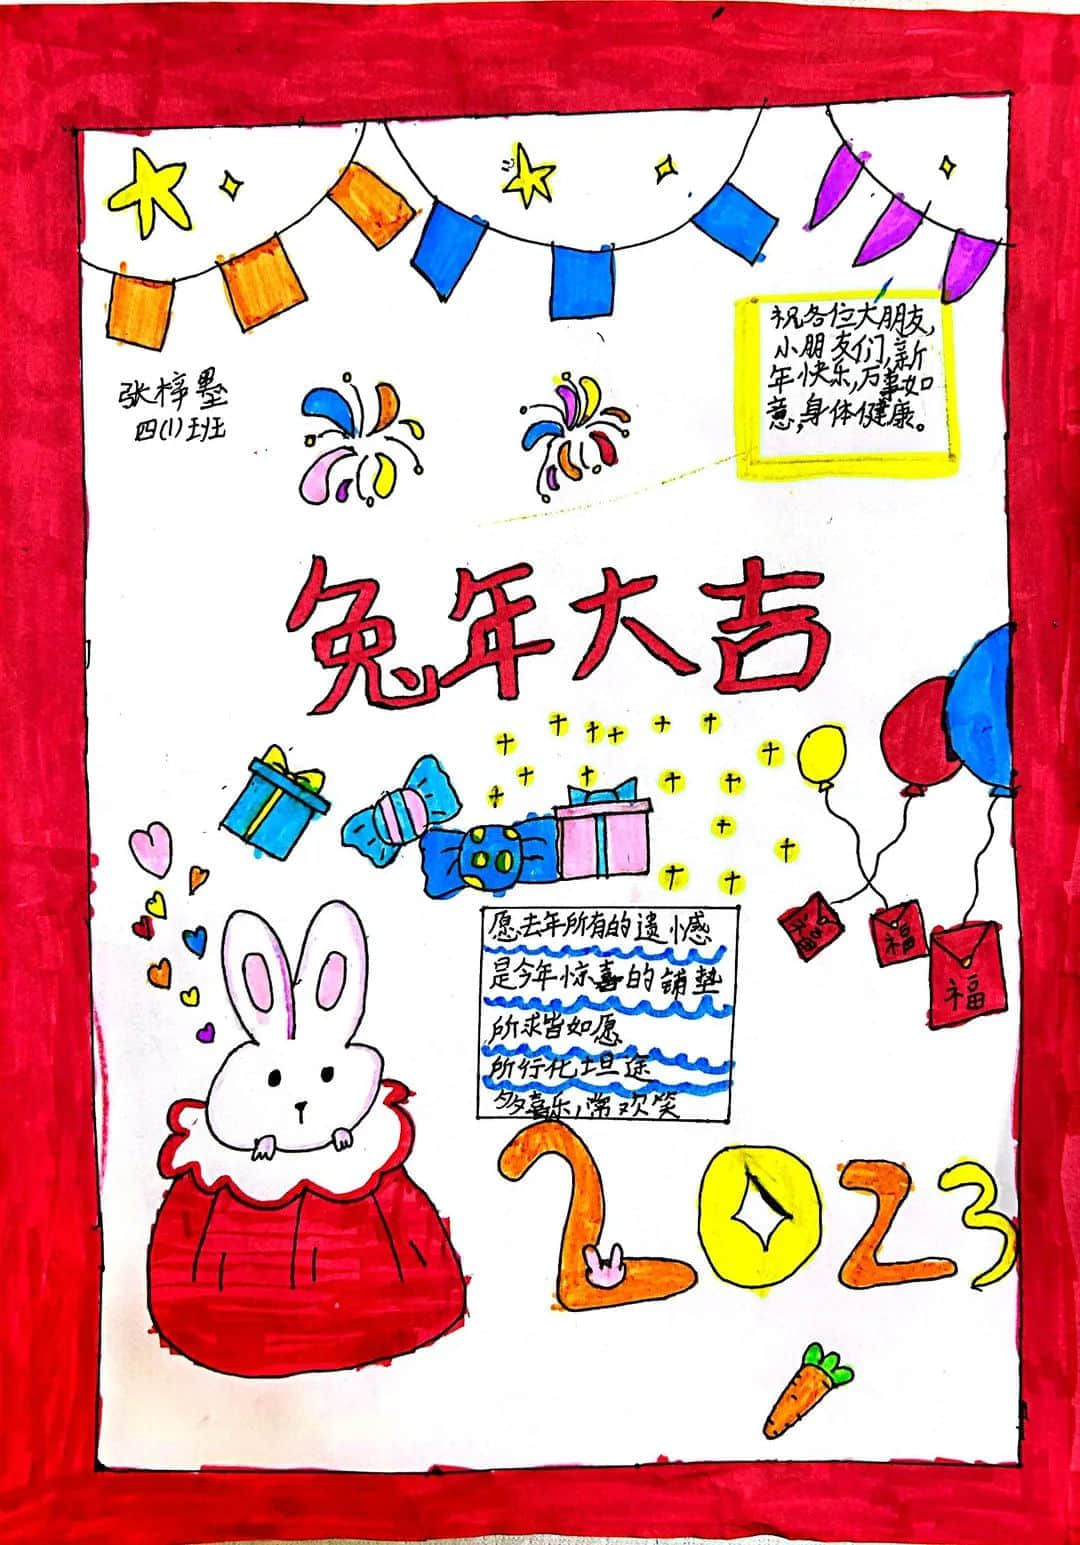 张梓墨
四(1)班
祝各位大朋友,
小朋友们,新
年快乐,万事如
意,身体健康。
兔年大吉
福
福
福
愿去年所有的遗憾
是今年惊喜的铺垫
所求皆如愿
所行化坦途
多喜乐,常欢笑
2023